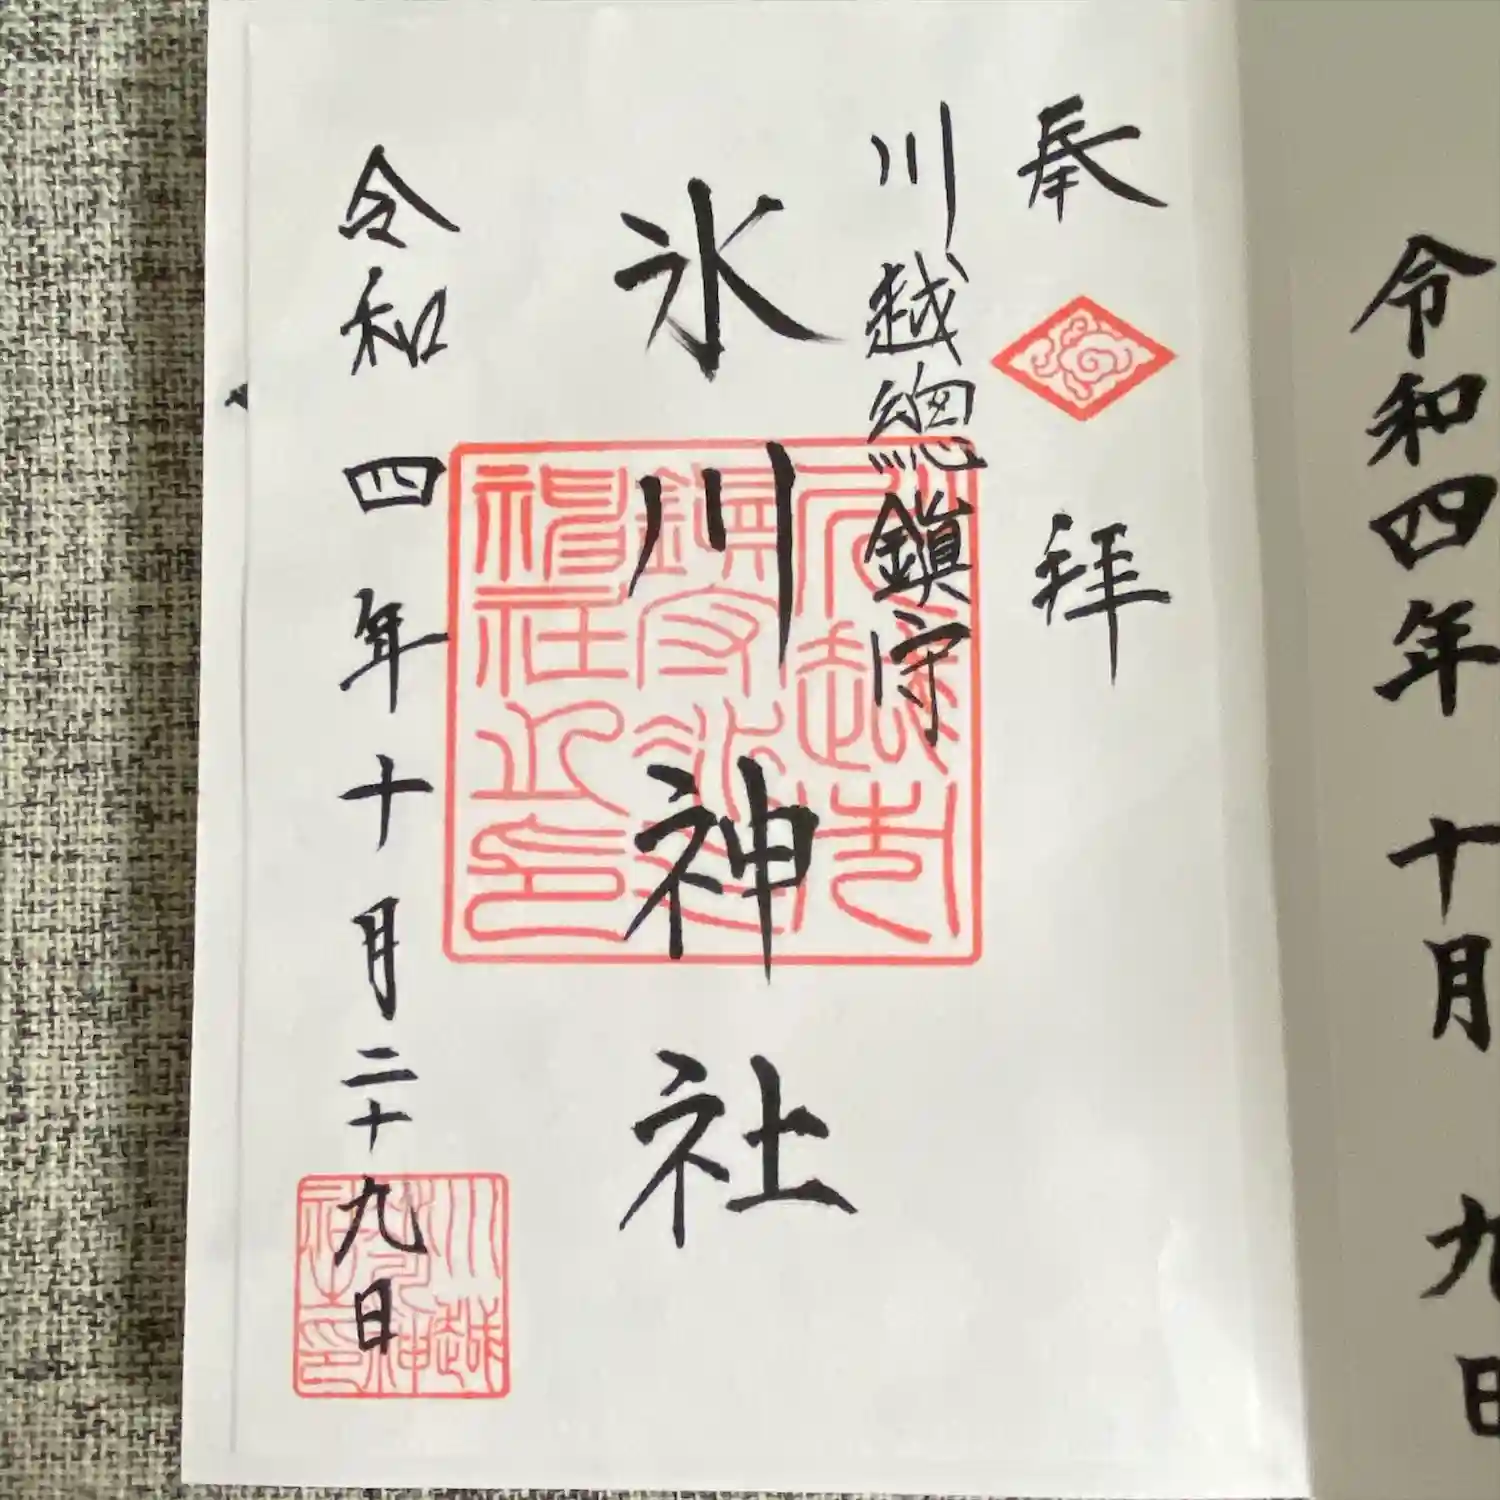 奉拝
川越總鎮守
氷川神社
令和四年十月二十九日
令和四年十月九日